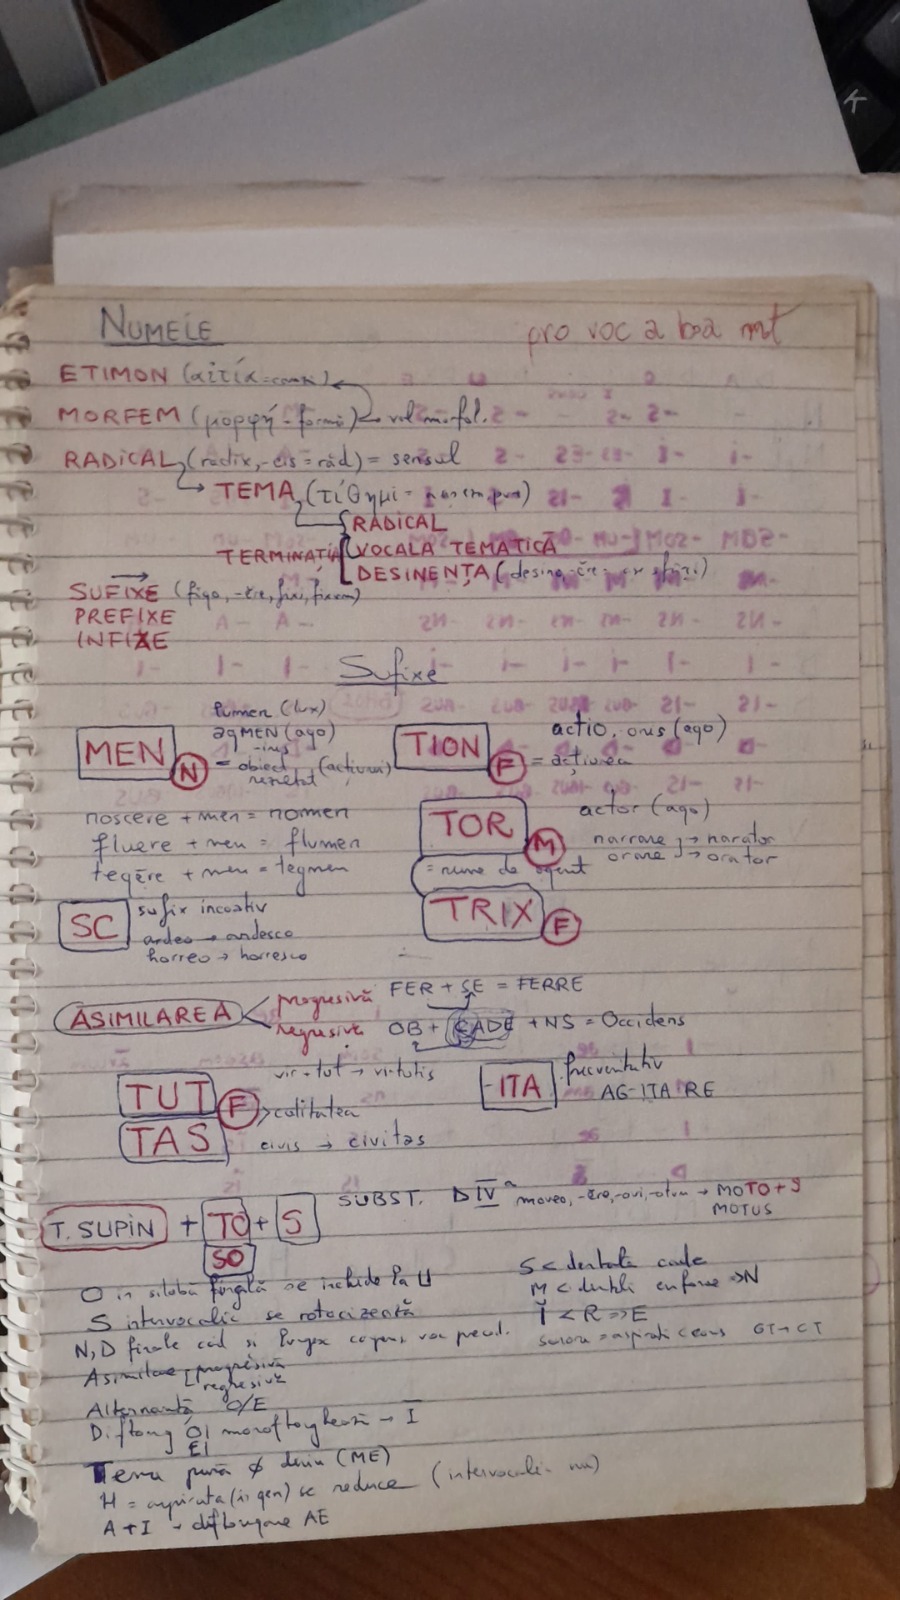 NUMELE
pro voc a ba mt
ETIMON (αἰτία =
MORFEM (μορφή = formă) → morfol.
RADICAL (radix, -cis = răd) = sensul
→ TEMA (τίθημι =
RADICAL
TERMINAȚIA VOCALA TEMATICĂ
DESINENȚA (desino -ĕre =
SUFIXE (figo, -ĕre, fixi, fixum)
PREFIXE
INFIXE
Sufixe
MEN N
lumen (lux)
agMEN (ago)
-inis
= obiect (acțiunii)
rezultat
TION F
actio, onis (ago)
= acțiunea
noscere + men = nomen
fluere + men = flumen
tegĕre + men = tegmen
TOR M
actor (ago)
narrare → narator
orare → orator
= nume de agent
TRIX F
SC
sufix incoativ
ardeo → ardesco
horreo → horresco
ASIMILAREA
progresivă FER + SE = FERRE
regresivă OB + CADE + NS = Occidens
TUT F
vir + tut → virtutis
calitatea
TAS
civis → civitas
-ITA
frecventativ
AG-ITA RE
T. SUPIN + TO + S SUBST. D IV a moveo, -ēre, -ovi, -otum → MOTO + S
MOTUS
SO
O în silabă finală se închide la U
S intervocalic se rotacizează
N, D finale cad și
Asimilare progresivă
regresivă
Alternanță O/E
Diftong OI monoftonghează → I
EI
Tema pură ∅ desin (ME)
H = aspirata (în gen) se reduce (intervocalic nu)
A + I → diftongare AE
S < dentala cade
M < dentala ⇒ N
Ĭ < R ⇒ E
GT → CT